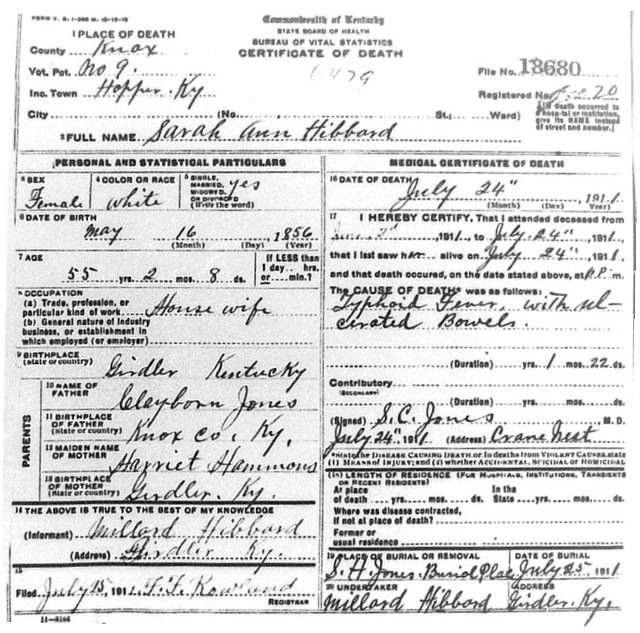 FORM V. S. 1-
Commonwealth of Kentucky
STATE BOARD OF HEALTH
BUREAU OF VITAL STATISTICS
CERTIFICATE OF DEATH
1 PLACE OF DEATH
County Knox
Vot. Pct. No 9.
Inc. Town Hopper. Ky
City (No. , St.; Ward)
File No. 18680
Registered No. 20
[If death occurred in a hospital or institution, give its NAME instead of street and number.]
2 FULL NAME Sarah Ann Hibbard
PERSONAL AND STATISTICAL PARTICULARS
3 SEX Female
4 COLOR OR RACE White
5 SINGLE, MARRIED, WIDOWED OR DIVORCED (Write the word) yes
6 DATE OF BIRTH
May 16 1856
(Month) (Day) (Year)
7 AGE
55 yrs. 2 mos. 8 ds.
If LESS than 1 day hrs. or min.?
8 OCCUPATION
(a) Trade, profession, or particular kind of work House wife
(b) General nature of industry business, or establishment in which employed (or employer)
9 BIRTHPLACE (State or country) Girdler Kentucky
PARENTS
10 NAME OF FATHER Clayborn Jones
11 BIRTHPLACE OF FATHER (State or country) Knox Co, Ky.
12 MAIDEN NAME OF MOTHER Harriet Hammons
13 BIRTHPLACE OF MOTHER (State or country) Girdler. Ky.
14 THE ABOVE IS TRUE TO THE BEST OF MY KNOWLEDGE
(Informant) Millard Hibbard
(Address) Girdler Ky.
15
Filed July 25, 1911 F. F. Rowland
REGISTRAR
11-8166
MEDICAL CERTIFICATE OF DEATH
16 DATE OF DEATH July 24" 1911
(Month) (Day) (Year)
17 I HEREBY CERTIFY, That I attended deceased from
1911, to July 24", 1911,
that I last saw her alive on July 24", 1911
and that death occured, on the date stated above, at P. m.
The CAUSE OF DEATH* was as follows:
Typhoid Fever, with ul-
cerated Bowels.
(Duration) yrs. 1 mos. 22 ds.
Contributory
(SECONDARY)
(Duration) yrs. mos. ds.
(Signed) S. C. Jones M.D.
July 24" 1911 (Address) Crane Nest
*State the DISEASE CAUSING DEATH, or, in deaths from VIOLENT CAUSES, state
(1) MEANS OF INJURY; and (2) whether ACCIDENTAL, SUICIDAL OR HOMICIDAL
18 LENGTH OF RESIDENCE (FOR HOSPITALS, INSTITUTIONS, TRANSIENTS
OR RECENT RESIDENTS)
At place of death yrs. mos. ds. In the State yrs. mos. ds.
Where was disease contracted,
If not at place of death?
Former or
usual residence
19 PLACE OF BURIAL OR REMOVAL DATE OF BURIAL
S. H. Jones. Burial Place July 25 1911
20 UNDERTAKER ADDRESS
Millard Hibbard Girdler. Ky.